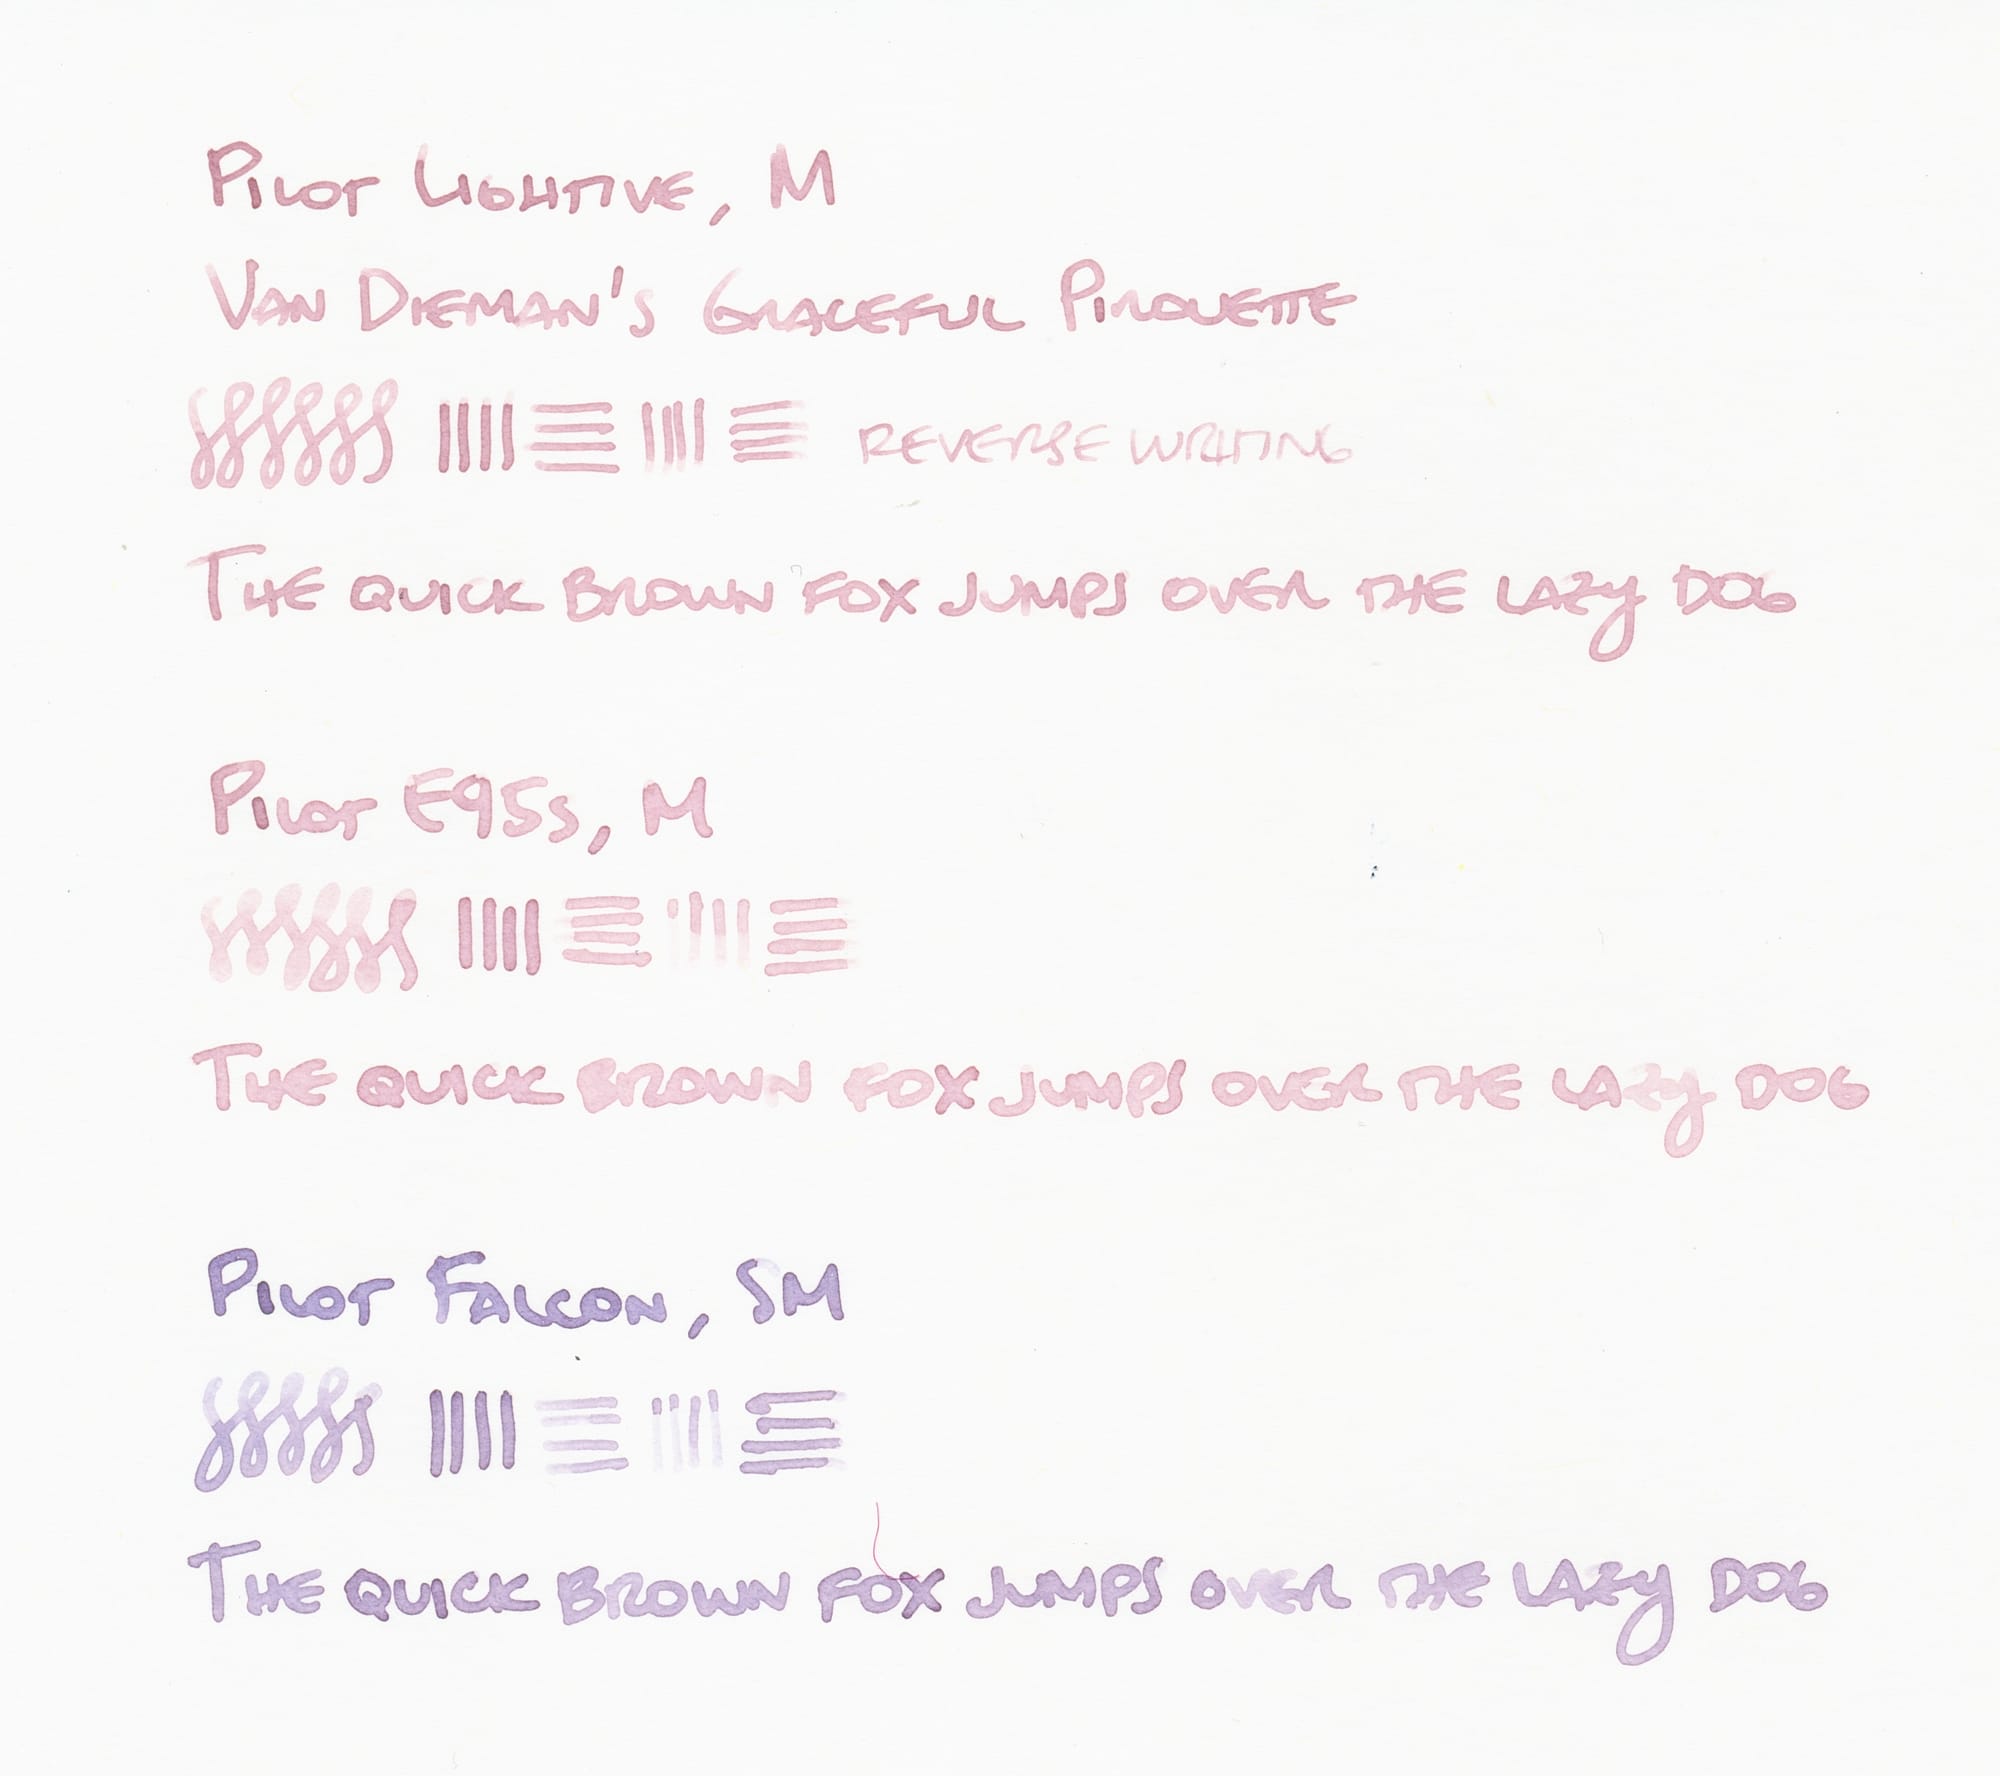 Pilot Lightive, M
Van Dieman's Graceful Pirouette
Reverse Writing
The quick brown fox jumps over the lazy dog
Pilot E95s, M
The quick brown fox jumps over the lazy dog
Pilot Falcon, SM
The quick brown fox jumps over the lazy dog